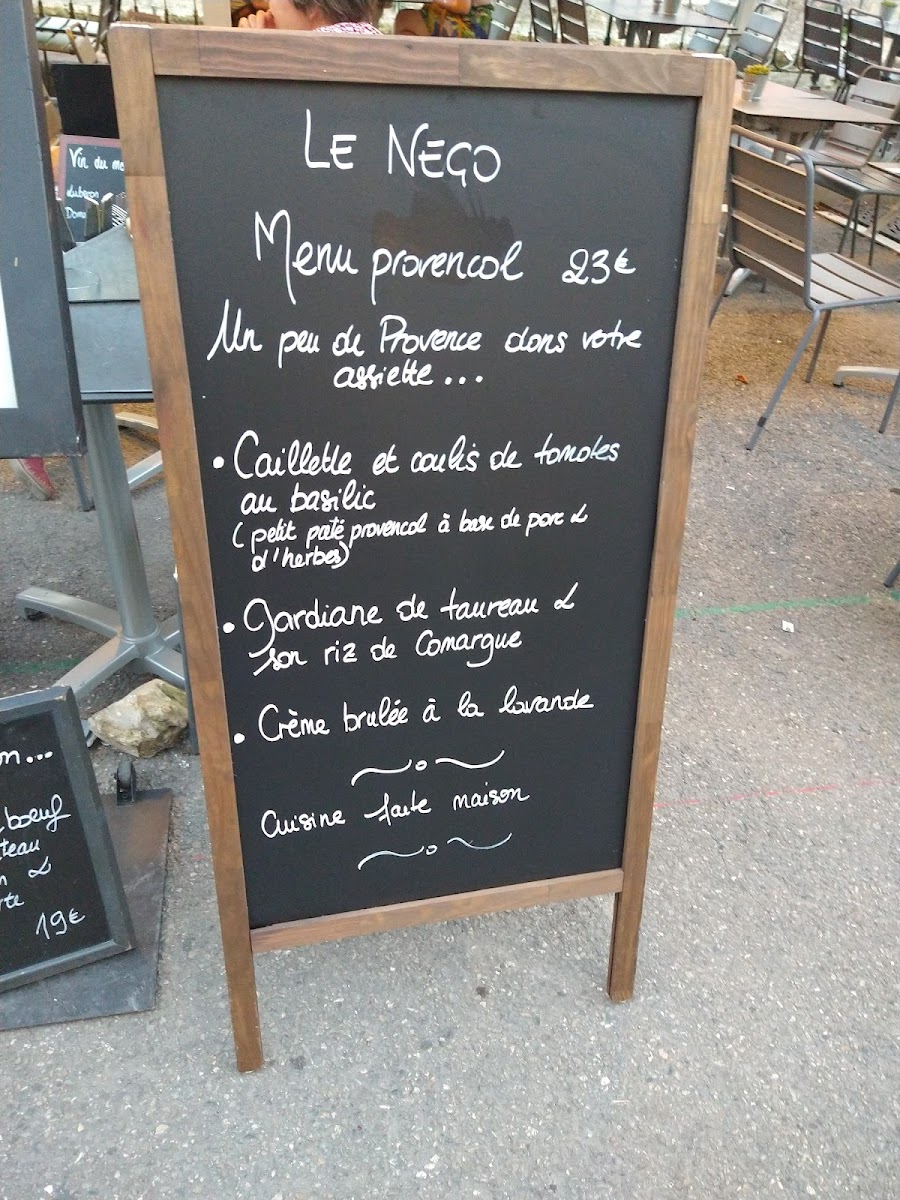 LE NEGO
Menu provencal 23€
Un peu de Provence dans votre
assiette...
• Caillette et coulis de tomates
au basilic
(petit paté provencal à base de porc &
d'herbes)
• Gardiane de taureau &
son riz de Camargue
• Crème brulée à la lavande
Cuisine faite maison
Vin du mo
Luberon
n...
boeuf
teau
n &
rte
19€